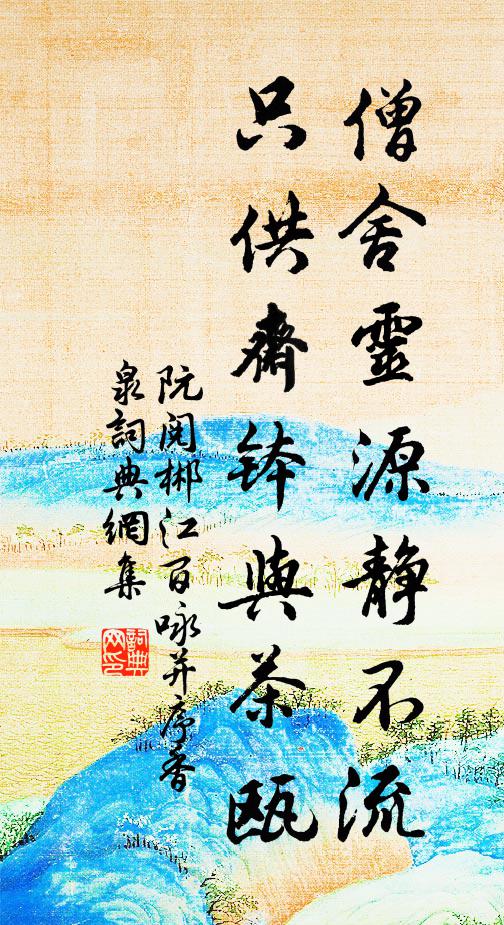 僧舍靈源静不流
只供齋鉢與茶甌
阮閱郴江百咏并序香
泉詞典網集
詞典
网印